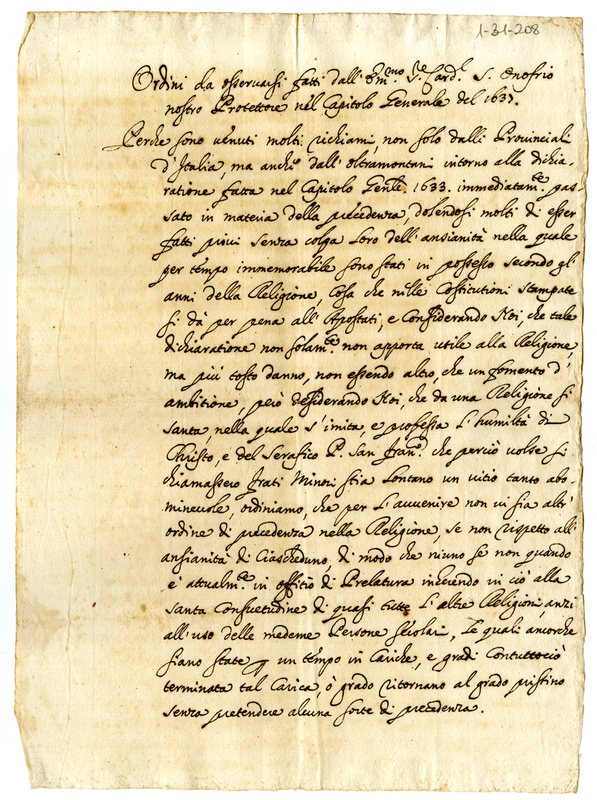 1-31-208
Ordini da osservarsi fatti dall' Em.mo S.re Card.l S. Onofrio
nostro Protettore nel Capitolo Generale del 1637.
Perche sono venuti molti richiami, non solo dalli Provinciali
d'Italia, ma anchi dall' oltramontani intorno alla dichia-
ratione fatta nel Capitolo Gen̄le. 1633. immediatam.te pas-
sato in materia della precedenza, dolendosi molti di esser
fatti privi senza colpa loro dell' ansianità nella quale
per tempo immemorabile sono stati in possesso secondo gl'
anni della Religione, Cosa che nille Costitutioni stampate
si dà per pena all' Apostati, e Considerando Noi, che tale
dichiaratione non solam.te non apporta utile alla Religione,
ma più tosto danno, non essendo altro, che un fomento d'
ambitione, però desiderando Noi, che da una Religione si
santa, nella quale s'imita, e professa l'humiltà di
Christo, e del Serafico P. San Fran.co che perciò volse si
chiamassero frati Minori stia lontano un vitio tanto abo-
minevole, ordiniamo, che per l'avvenire non vi sia altr'
ordine di precedenza nella Religione, se non rispetto all'
ansianità di Ciascheduno, di modo che niuno se non quando
è attualm.te in offitio di Prelatura inherendo in ciò alla
santa Consuetudine di quasi tutte l'altre Religioni, anzi
all'uso delle medeme Persone secolari, le quali ancorche
siano state p un tempo in Cariche, e gradi Contuttociò
terminata tal Carica, ò grado ritornano al grado pristino
senza pretendere alcuna sorte di precedenza.